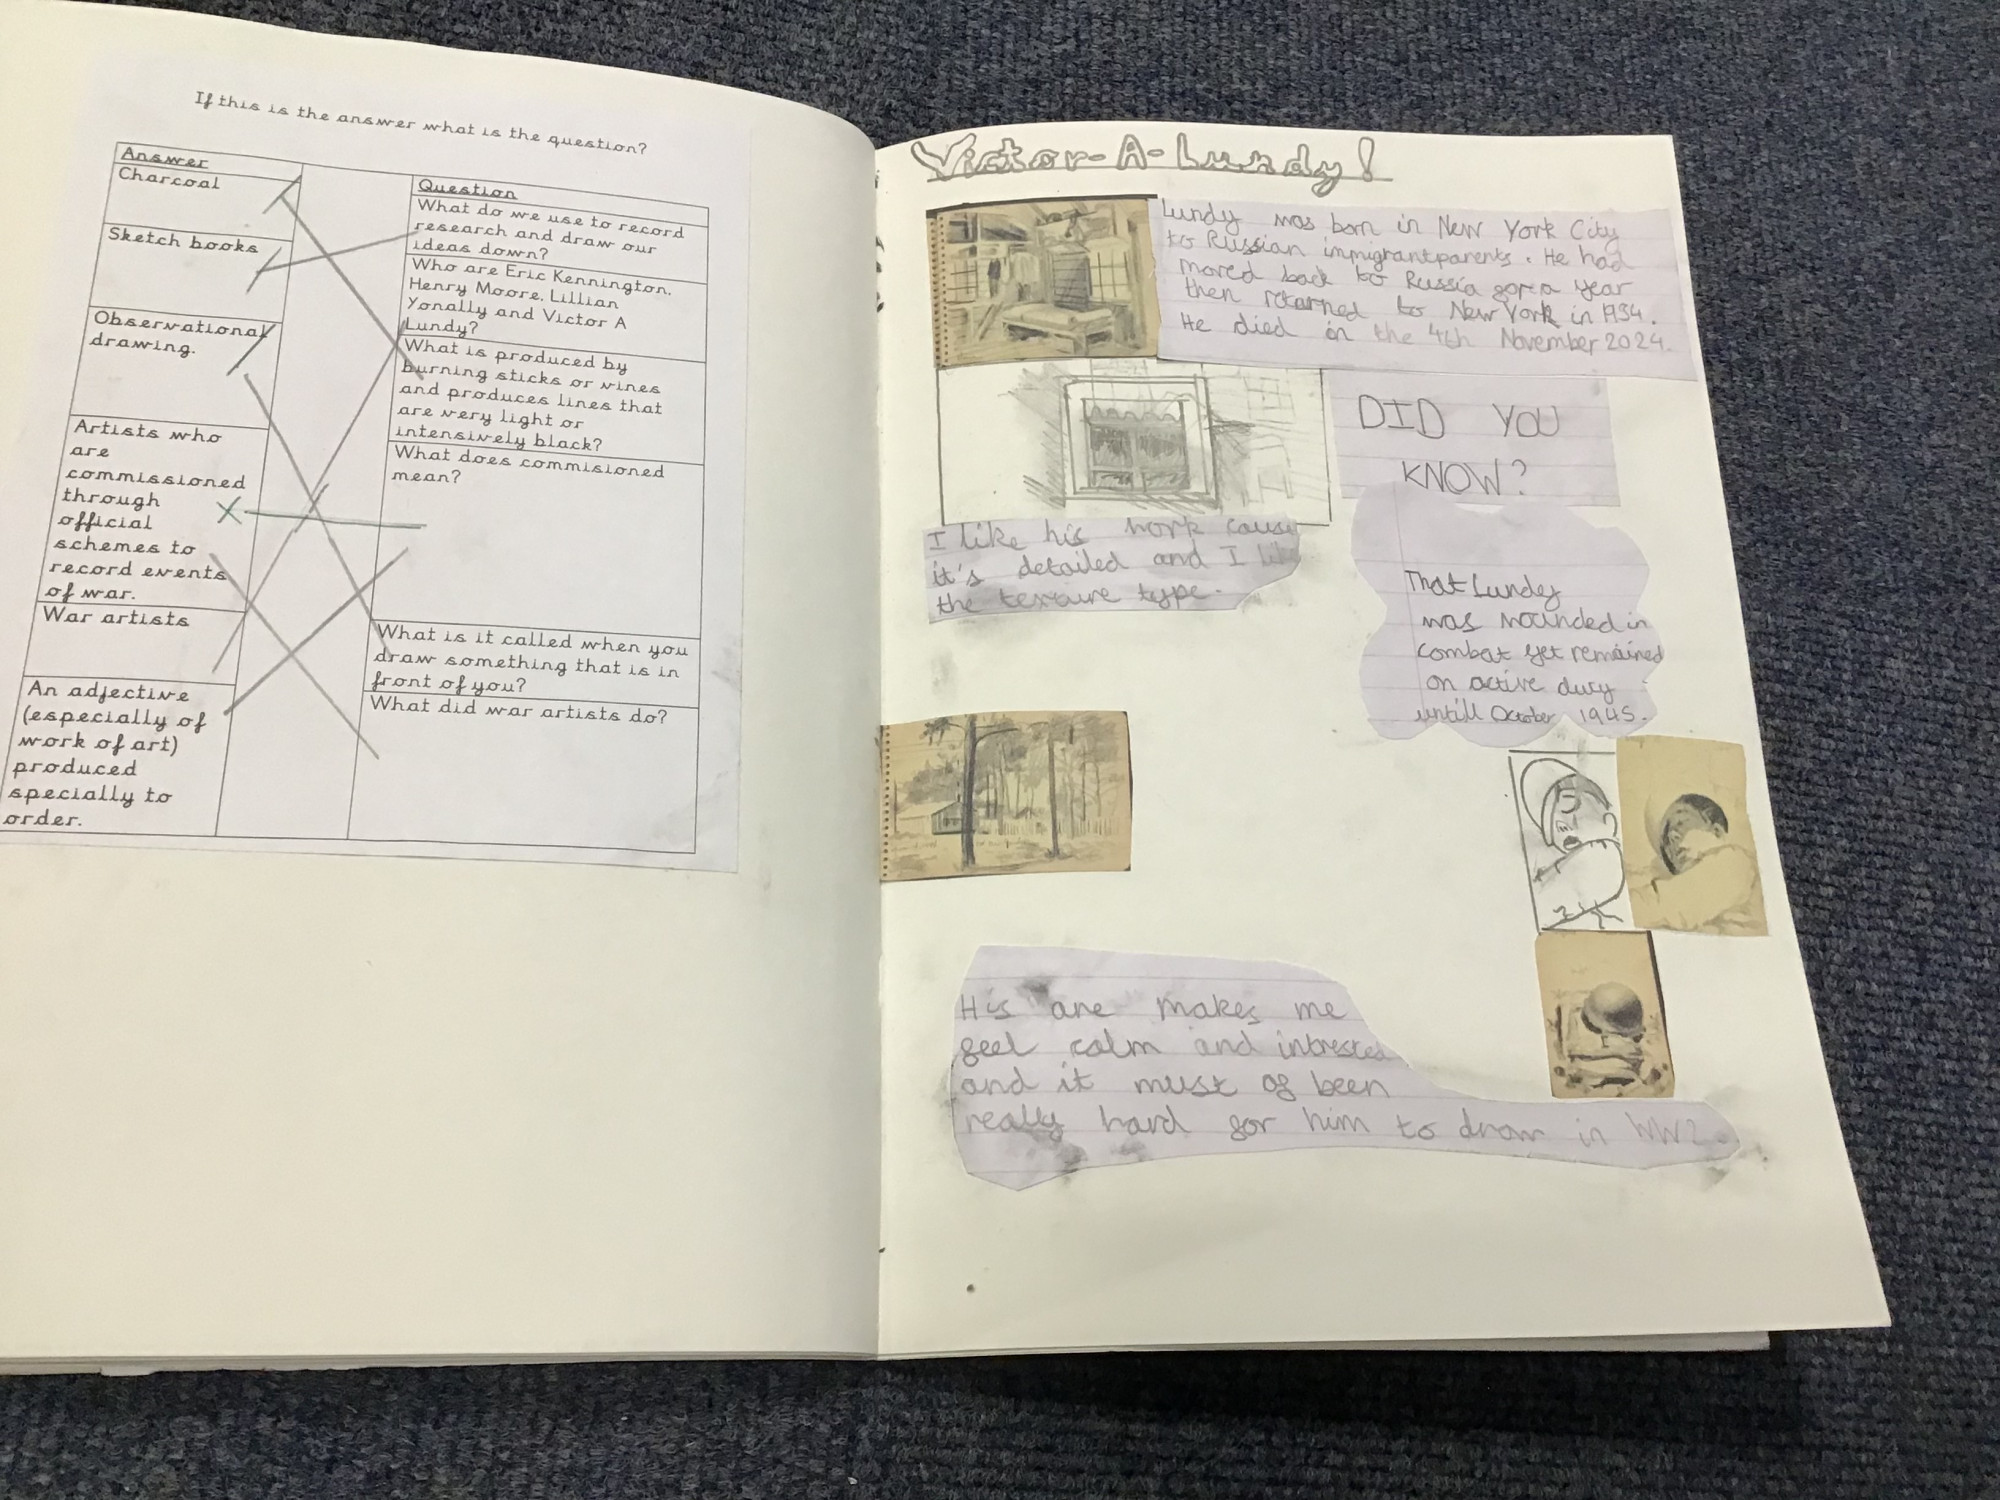 If this is the answer what is the question?
Answer
Charcoal
Sketch books
Observational
drawing.
Artists who
are
commissioned
through
official
schemes to
record events
of war.
War artists
An adjective
(especially of
work of art)
produced
specially to
order.
Question
What do we use to record
research and draw our
ideas down?
Who are Eric Kennington,
Henry Moore, Lillian
Yonally and Victor A
Lundy?
What is produced by
burning sticks or vines
and produces lines that
are very light or
intensively black?
What does commisioned
mean?
What is it called when you
draw something that is in
front of you?
What did war artists do?
Victor-A-Lundy!
Lundy was born in New York City
to Russian immigrant parents. He had
moved back to Russia for a year
then returned to New York in 1934.
He died in the 4th November 2024.
DID YOU
KNOW?
I like his work cause
it's detailed and I like
the texture type.
That Lundy
was wounded in
combat yet remained
on active duty
untill October 1945.
His are makes me
feel calm and intrested
and it must of been
really hard for him to draw in WW2.